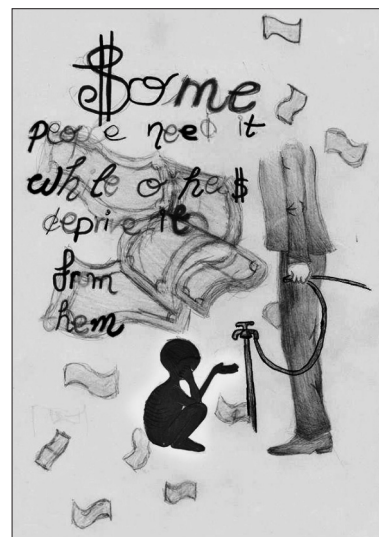 $ome
people need it
while other$
deprive it
from
them